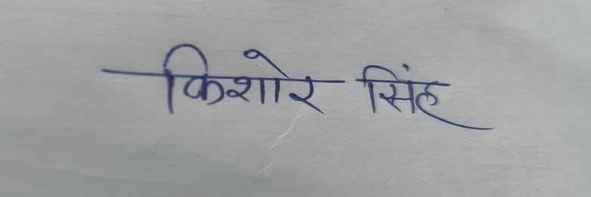 किशोर सिंह